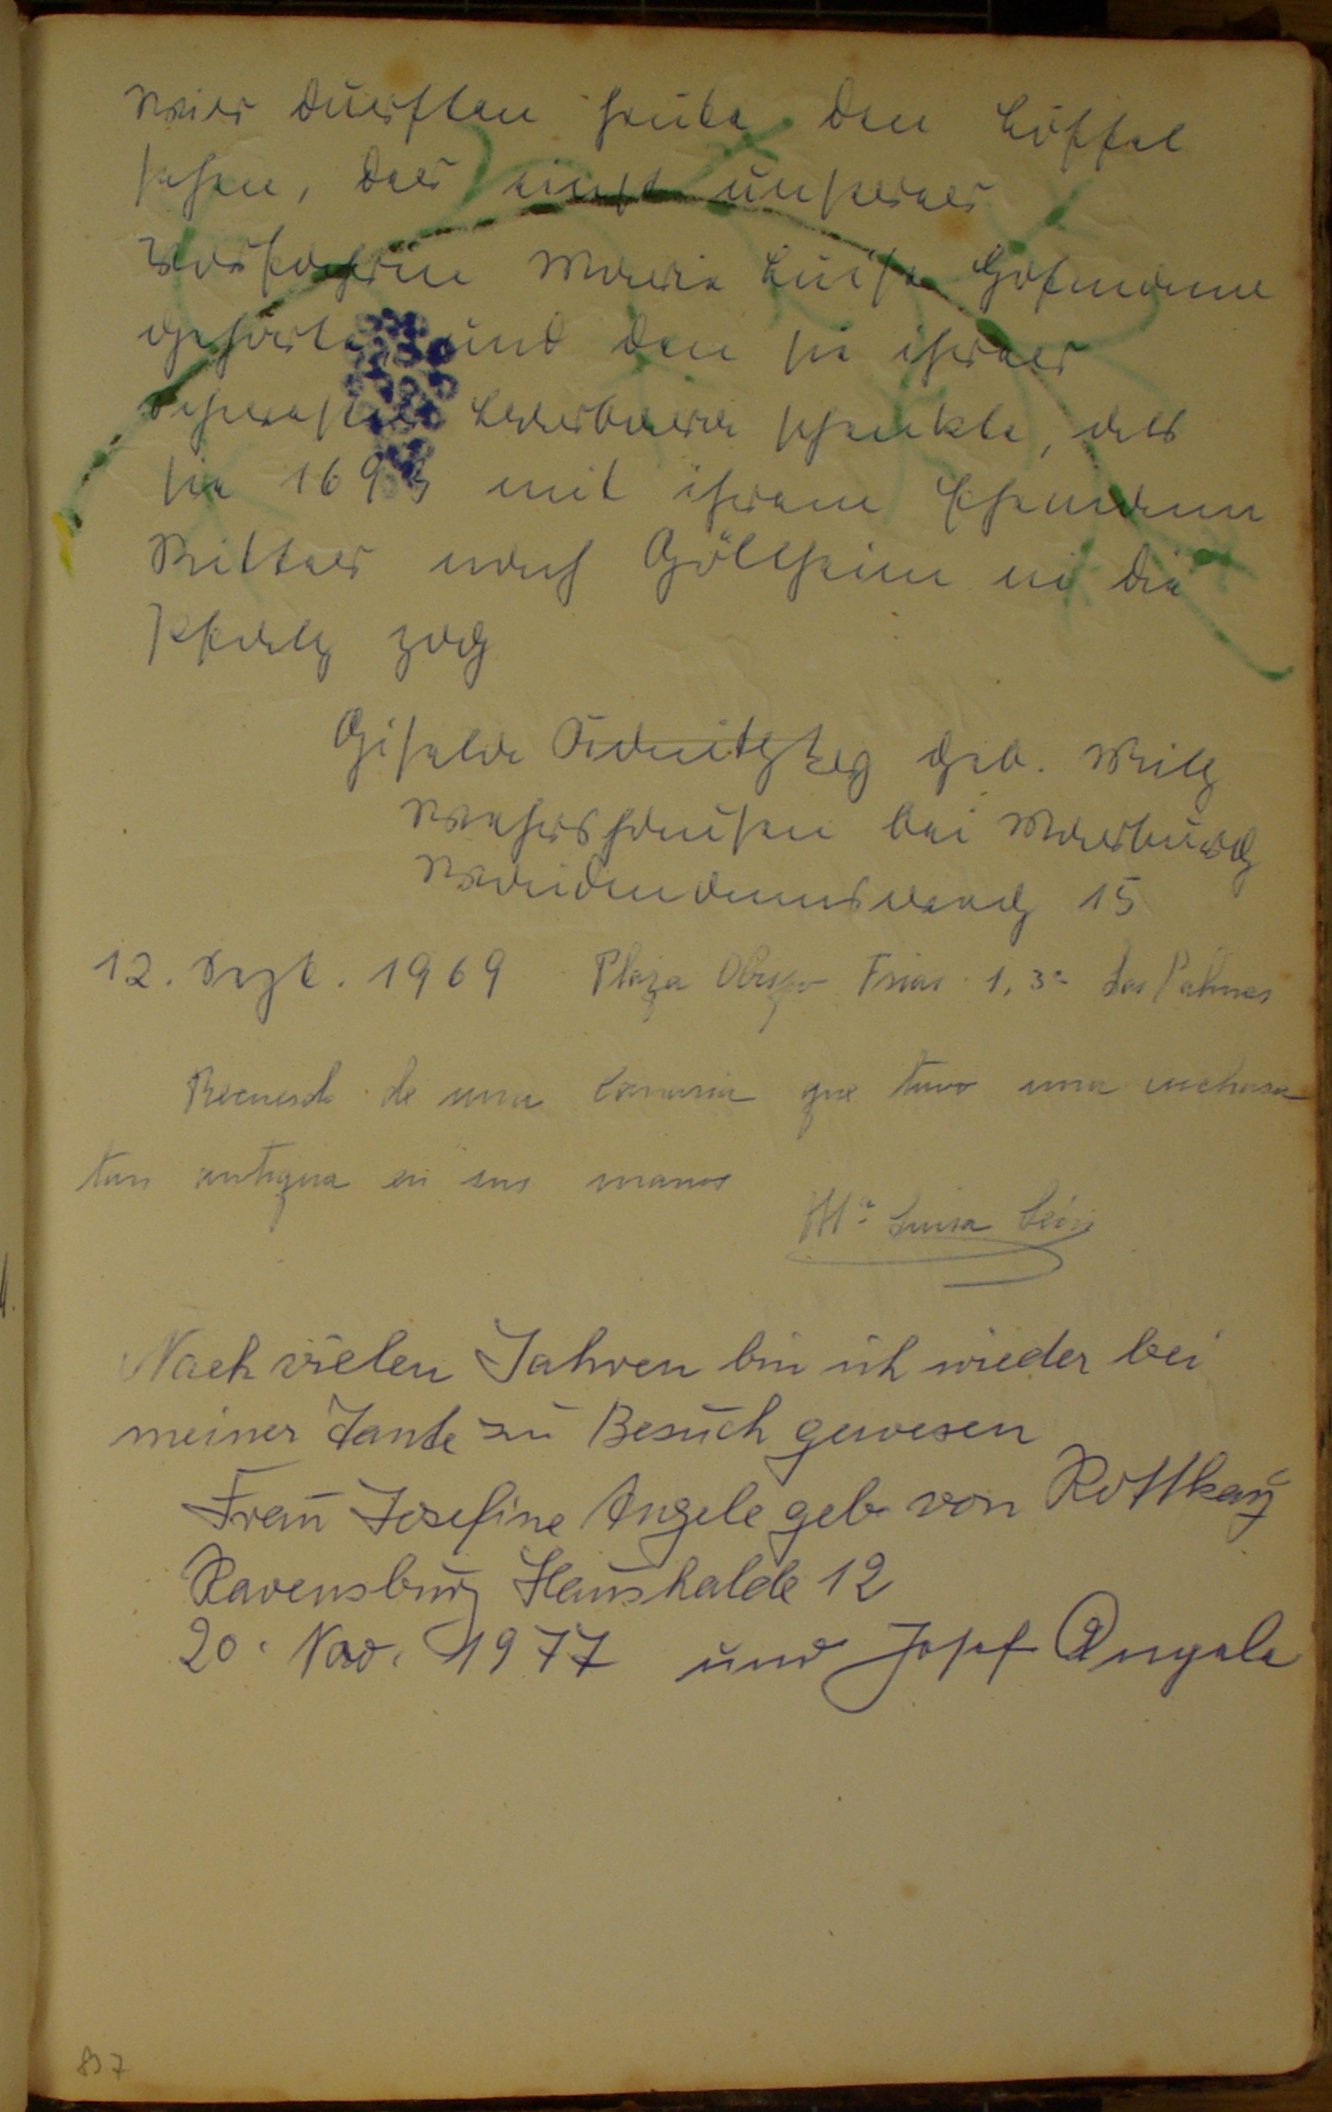 Wir durften heute den Löffel
sehen, der einst unserer
Vorfahrin Maria Luise Hofmann
gehörte und den sie ihrer
Schwester Barbara schenkte, als
sie 1693 mit ihrem Ehemann
Ritter nach Göllheim in die
Pfalz zog
Gisela geb. Weitz
Wehrshausen bei Marburg
15
12. Sept. 1969 Plaza Obispo Frias 1, 3º Las Palmas
Recuerdo de una Canaria que tuvo una cuchara
tan antigua en sus manos
Mª Luisa León
Nach vielen Jahren bin ich wieder bei
meiner Tante zu Besuch gewesen
Frau Josefine Angele geb von Rottkay
Ravensburg Haushalde 12
20. Nov. 1977 und Josef Angele
837